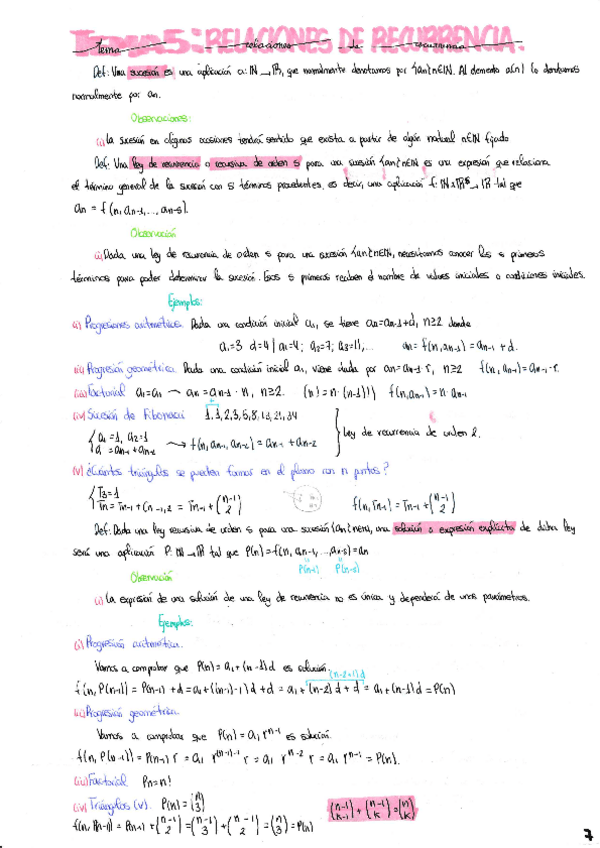 Tema 5: RELACIONES DE RECURRENCIA.
tema relaciones de recurrencia
Def: Una sucesión es una aplicación a: ℕ → ℝ, que normalmente denotamos por {an}n∈ℕ. Al elemento a(n) lo denotamos
normalmente por an.
Observaciones:
(i) La sucesión en algunas ocasiones tendrá sentido que exista a partir de algún natural n∈ℕ fijado
Def: Una ley de recurrencia o recursiva de orden s para una sucesión {an}n∈ℕ es una expresión que relaciona
el término general de la sucesión con s términos precedentes, es decir, una aplicación f: ℕxℝˢ → ℝ tal que
an = f(n, an-1, ..., an-s).
Observación
(i) Dada una ley de recurrencia de orden s para una sucesión {an}n∈ℕ, necesitamos conocer los s primeros
términos para poder determinar la sucesión. Esos s primeros reciben el nombre de valores iniciales o condiciones iniciales.
Ejemplos:
(i) Progresiones aritméticas. Dada una condición inicial a1, se tiene an=an-1+d, n≥2 donde
a1=3 d=4 | a1=4; a2=7; a3=11,... an = f(n,an-1) = an-1 + d.
(ii) Progresión geométrica. Dada una condición inicial a1, viene dada por an=an-1·r, n≥2 f(n,an-1)=an-1·r.
(iii) Factorial a1=a1 → an = an-1 · n, n≥2. (n! = n·(n-1)!) f(n,an-1) = n·an-1
(iv) Sucesión de Fibonacci 1,1,2,3,5,8,13,21,34
{a1=1, a2=1
a = an-1+an-2 → f(n,an-1,an-2) = an-1+an-2 } Ley de recurrencia de orden 2.
(v) ¿Cuántos triángulos se pueden formar en el plano con n puntos?
{T3=1
Tn = Tn-1 + Cn-1,2 = Tn-1 + (n-1 2) f(n,Tn-1) = Tn-1 + (n-1 2)
Def: Dada una ley recursiva de orden s para una sucesión {an}n∈ℕ, una solución o expresión explícita de dicha ley
será una aplicación P: ℕ → ℝ tal que P(n) = f(n, an-1, ..., an-s) = an
P(n-1) P(n-s)
Observación
(i) La expresión de una solución de una ley de recurrencia no es única y dependerá de unos parámetros.
Ejemplos:
(i) Progresión aritmética.
Vamos a comprobar que P(n) = a1 + (n-1)d es solución.
(n-2+1)d
f(n, P(n-1)) = P(n-1) + d = a1 + ((n-1)-1)d + d = a1 + (n-2)d + d = a1 + (n-1)d = P(n)
(ii) Progresión geométrica
Vamos a comprobar que P(n) = a1 rⁿ⁻¹ es solución.
f(n, P(n-1)) = P(n-1) r = a1 r⁽ⁿ⁻¹⁾⁻¹ r = a1 rⁿ⁻² r = a1 rⁿ⁻¹ = P(n).
(iii) Factorial Pn = n!
(iv) Triángulos (v). P(n) = (n 3) (n-1 k-1) + (n-1 k) = (n k)
f(n, P(n-1)) = P(n-1) + (n-1 2) = (n-1 3) + (n-1 2) = (n 3) = P(n)
7